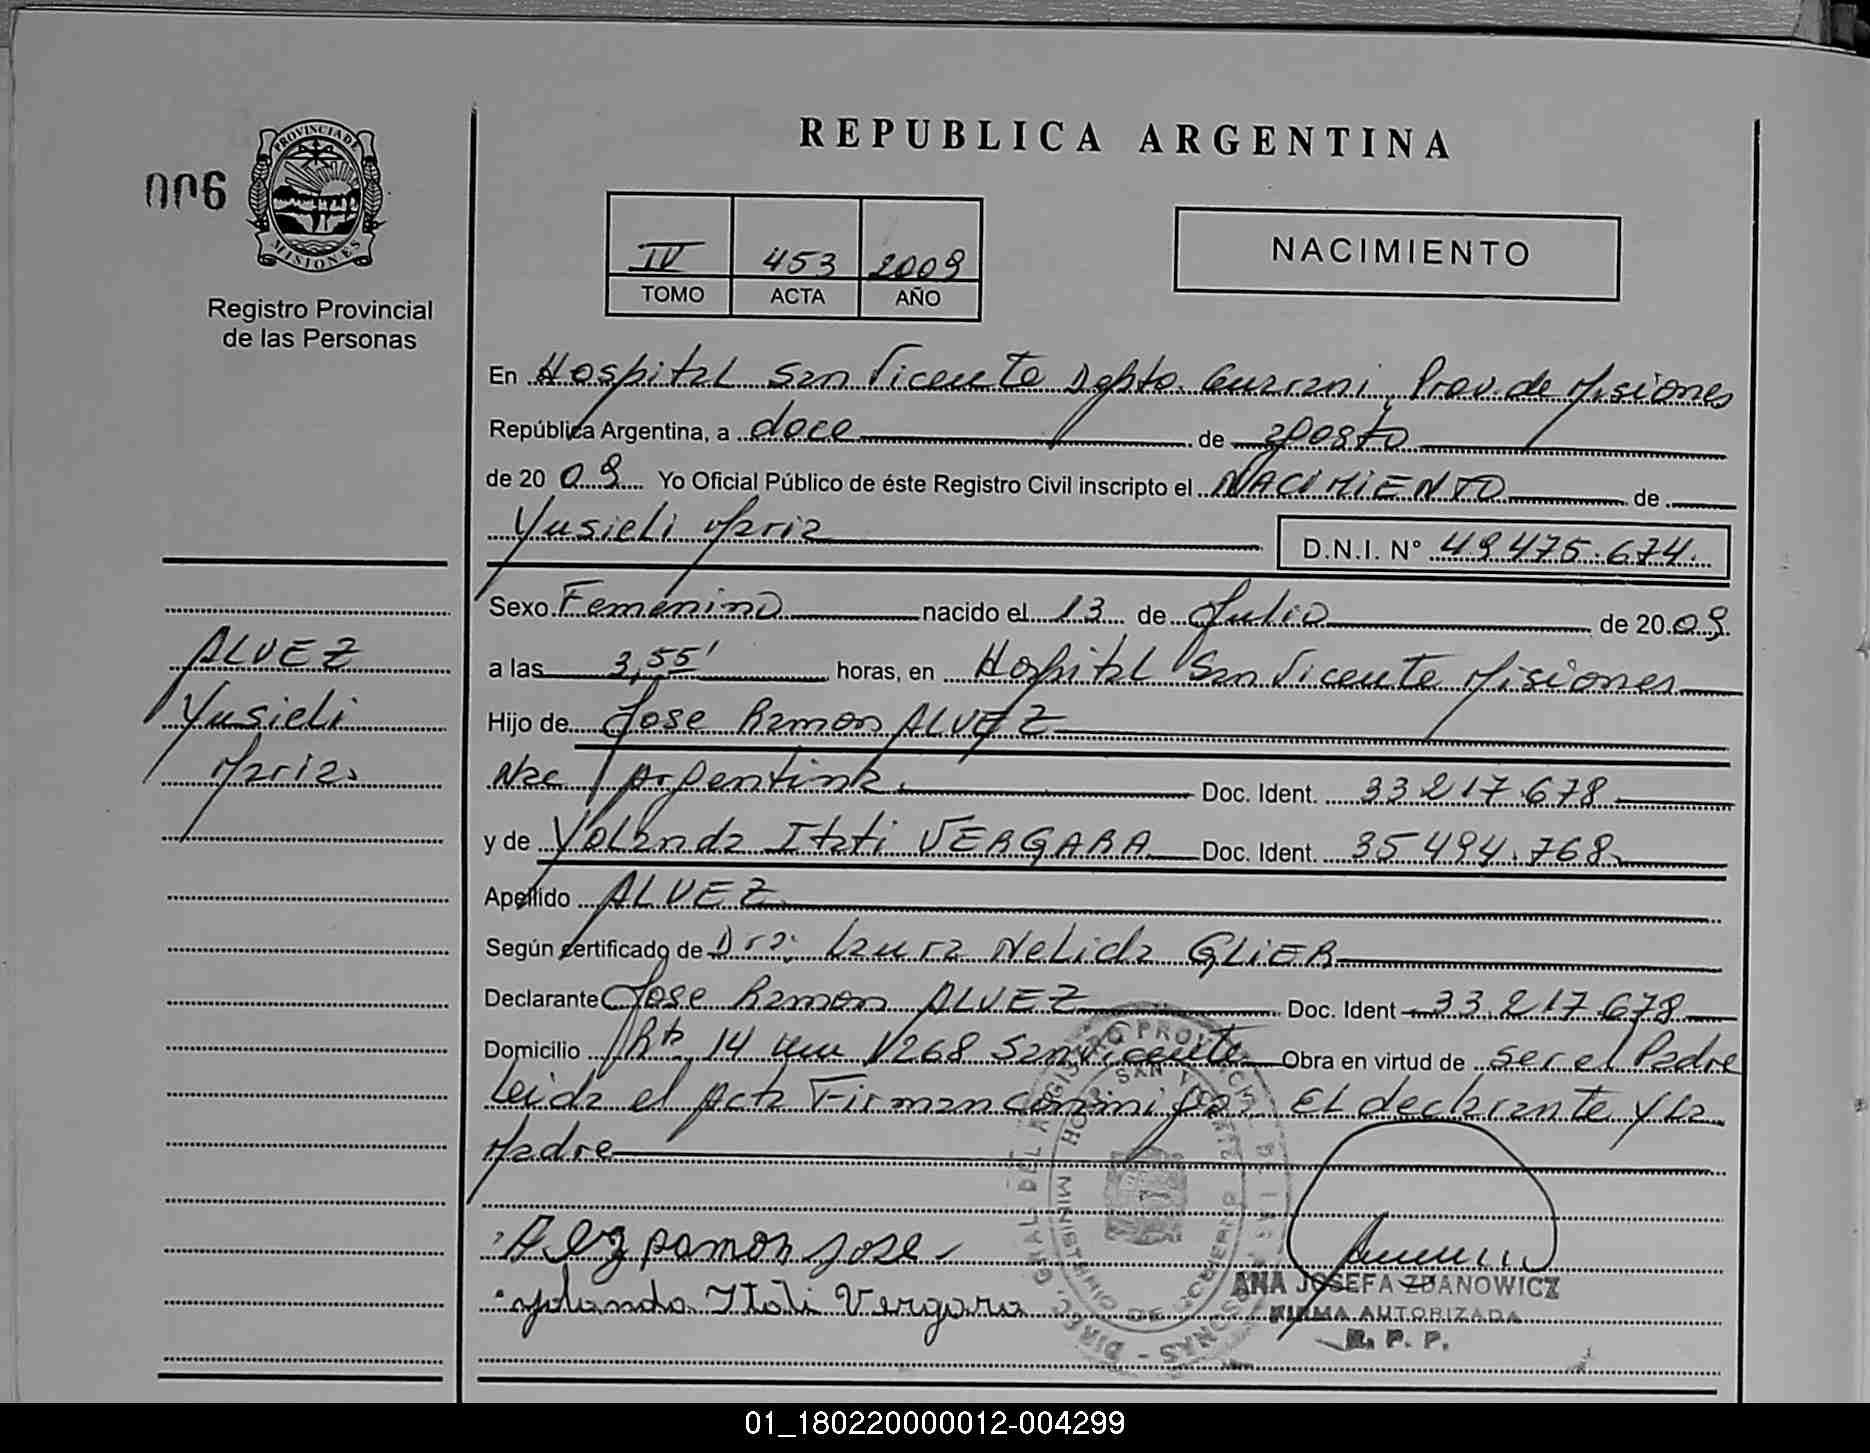 REPUBLICA ARGENTINA
006
PROVINCIA DE
MISIONES
Registro Provincial
de las Personas
IV 453 2009
TOMO ACTA AÑO
NACIMIENTO
En Hospital San Vicente Dpto. Guarani, Prov. de Misiones
República Argentina, a doce de agosto
de 20 09 Yo Oficial Público de éste Registro Civil inscripto el NACIMIENTO de
Yusieli Maria D.N.I. N° 49.475.674.
Sexo Femenino nacido el 13 de Julio de 20 09
a las 3,55' horas, en Hospital San Vicente Misiones
Hijo de Jose Ramon ALVEZ
Nac Argentina. Doc. Ident. 33.217.678
y de Yolanda Itati VERGARA Doc. Ident. 35.494.768
Apellido ALVEZ
Según certificado de Dra: Laura Nelida GLIER
Declarante Jose Ramon ALVEZ Doc. Ident 33.217.678
Domicilio Rta 14 km 1268 San Vicente Obra en virtud de ser el Padre
Leida el Acta Firman conmigo: El declarante y la
Madre
ALVEZ
Yusieli
Maria.
Alez ramon jose
yolanda Itati Vergara
ANA JOSEFA ZDANOWICZ
FIRMA AUTORIZADA
R. P. P.
01_180220000012-004299